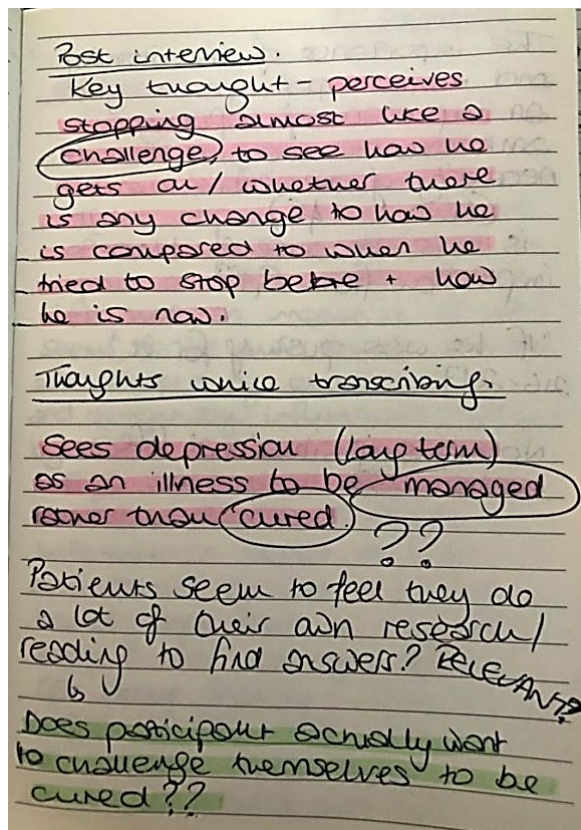 Post interview.
Key thought - perceives
stopping almost like a
challenge, to see how he
gets on / whether there
is any change to how he
is compared to when he
tried to stop before + how
he is now.
Thoughts while transcribing.
Sees depression (long term)
as an illness to be managed
rather than cured.
??
Patients seem to feel they do
a lot of their own research/
reading to find answers? RELEVANT?
↳
Does participant actually want
to challenge themselves to be
cured??